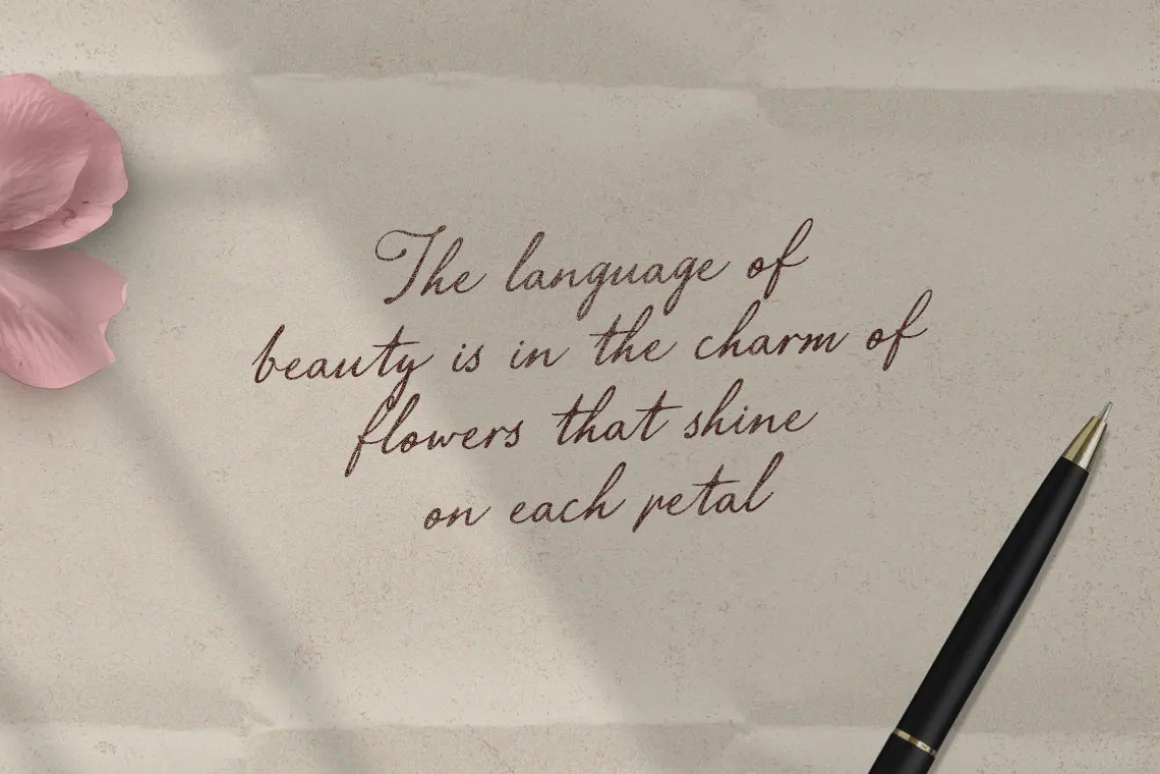 The language of
beauty is in the charm of
flowers that shine
on each petal